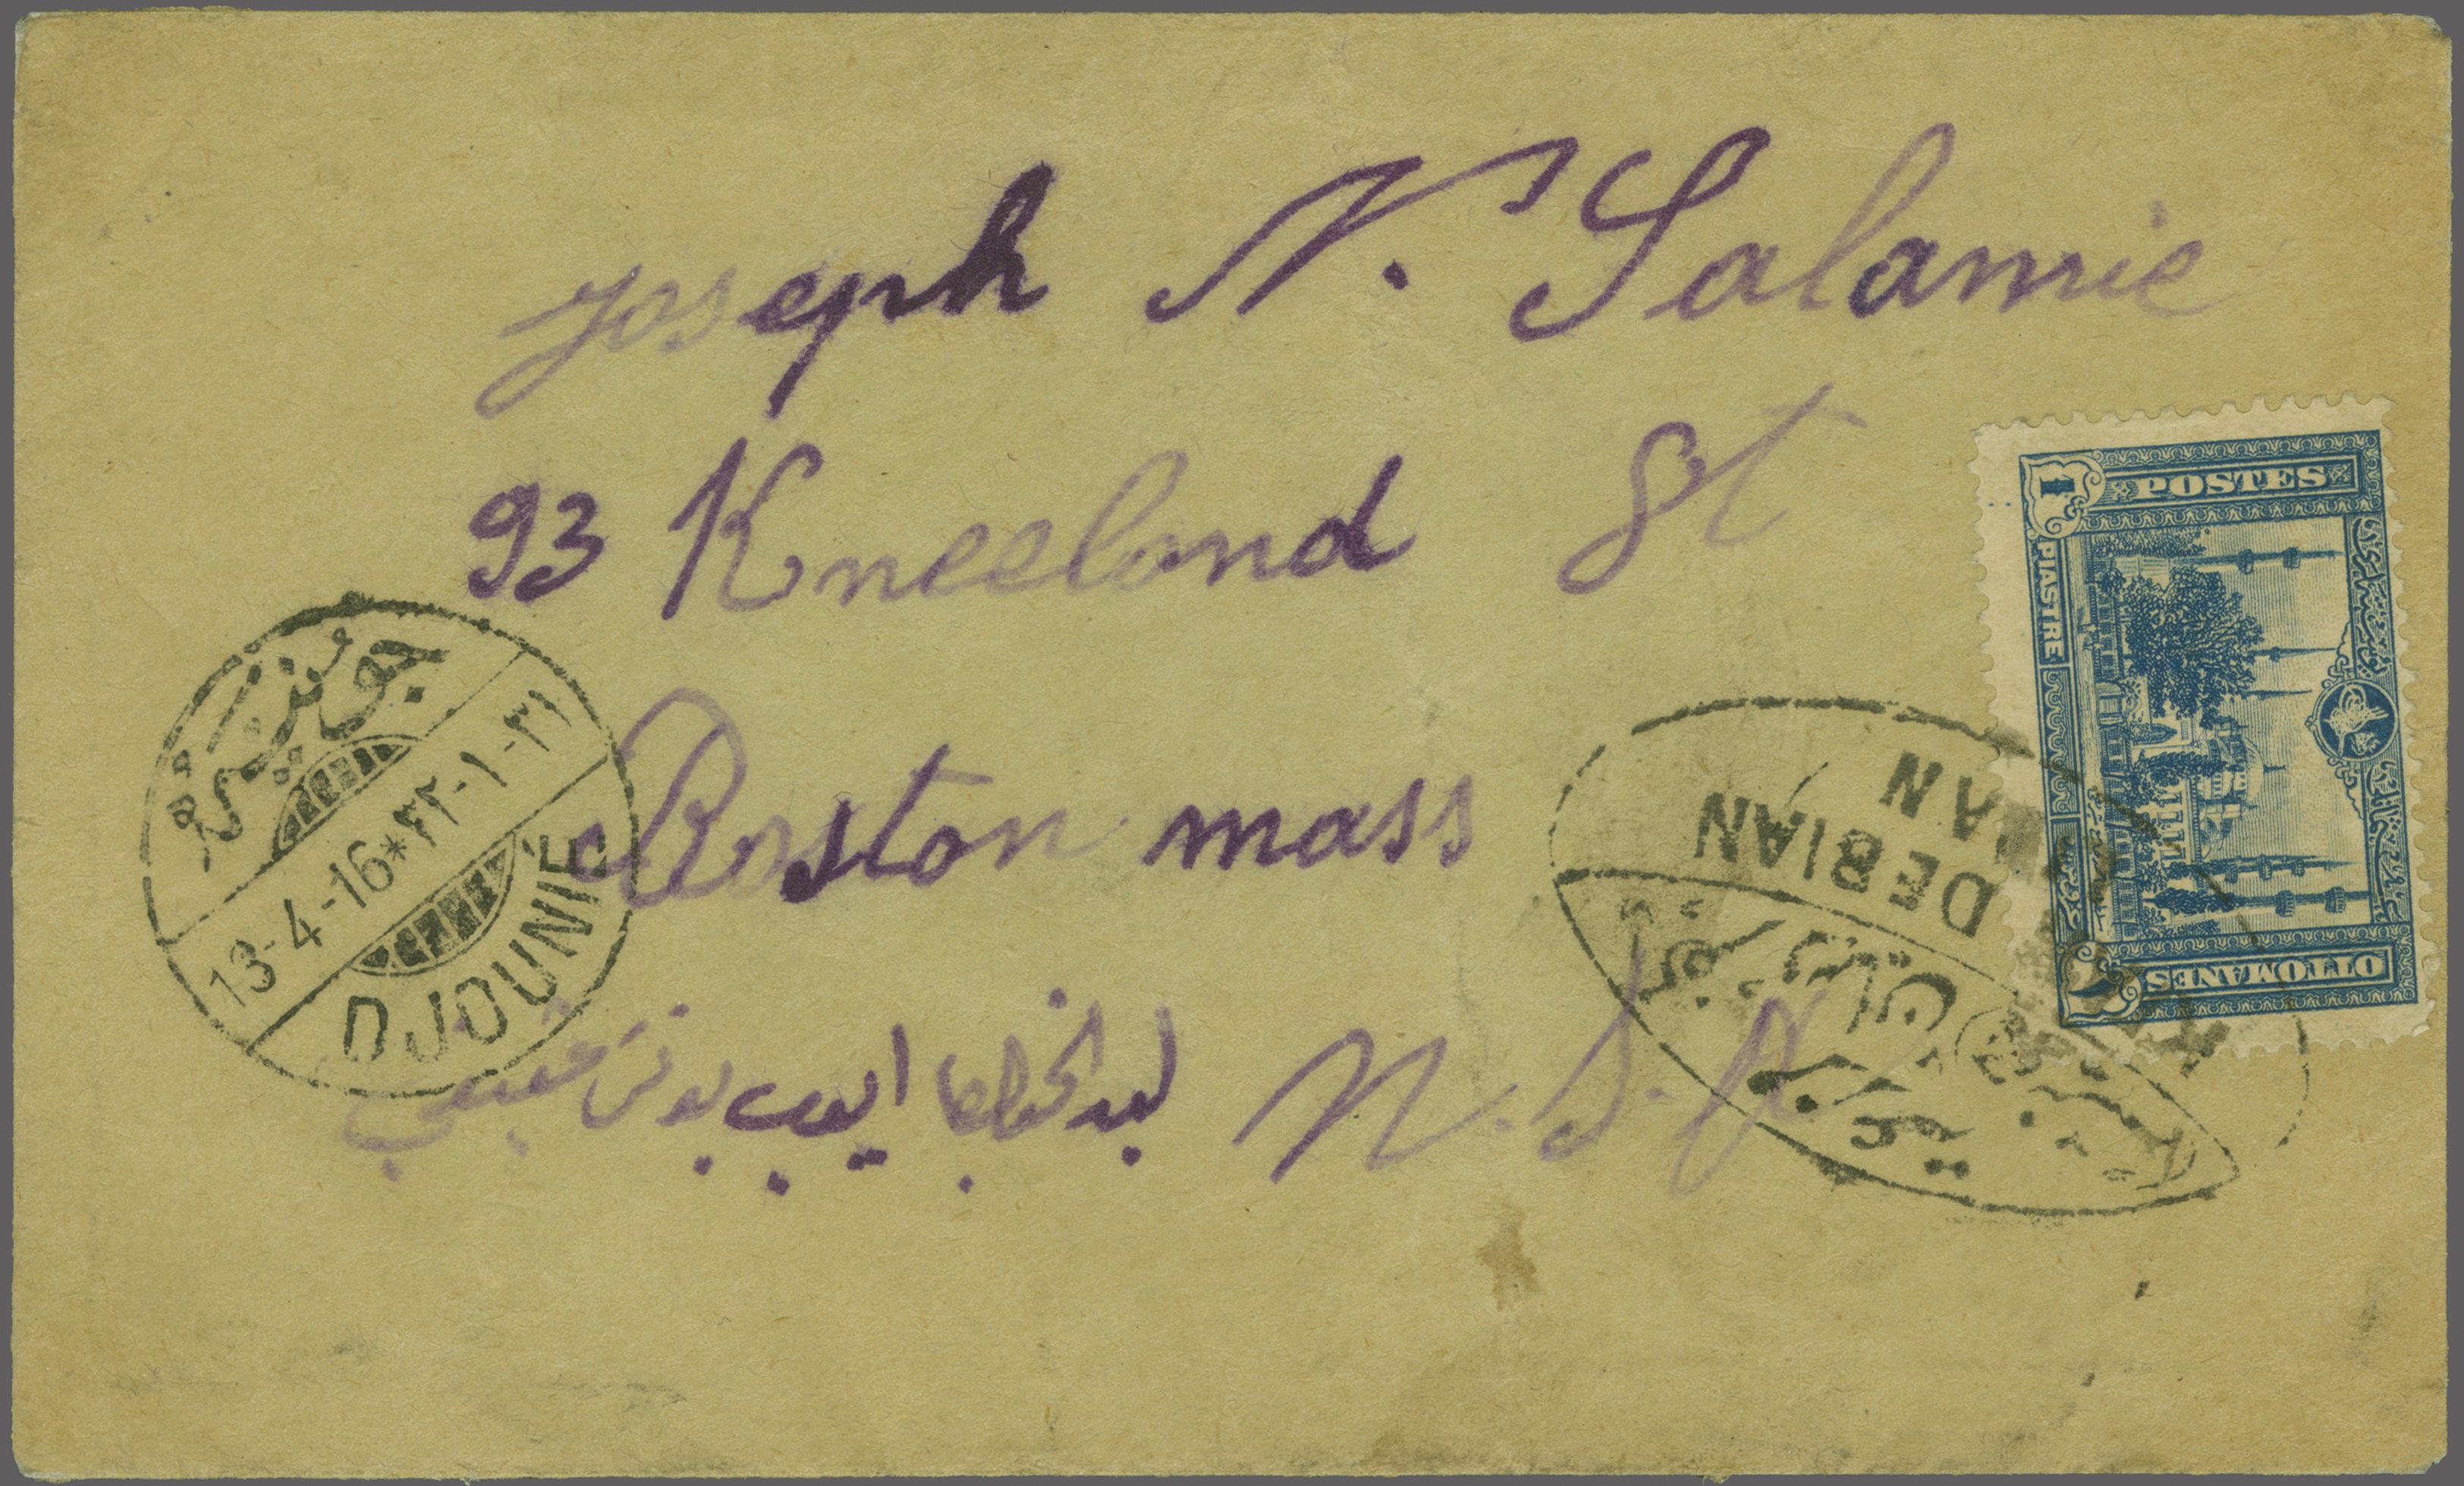 Joseph N. Salamie
93 Kneeland St
Boston mass
N.S.A
ليد الخواجا
جونيه
13-4-16*٣٢-١-٣١
DJOUNIÉ
POSTES
OTTOMANES
1
PIASTRE
DEBIAN